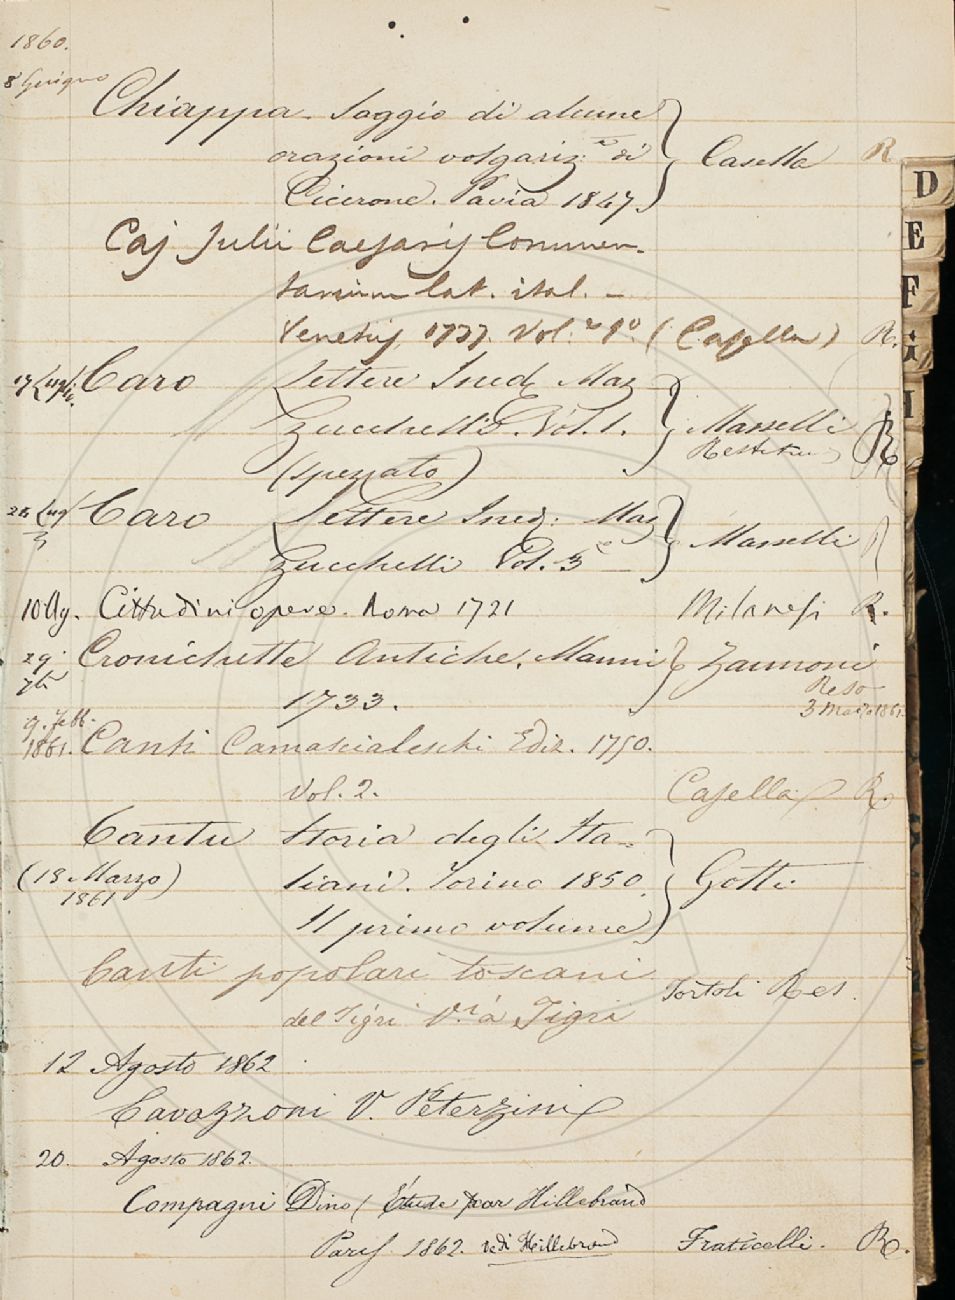 1860.
8 Giugno
Chiappa - Saggio di alcune
orazioni volgariz.ne di
Cicerone. Pavia 1847.
Casella R
Caj Julii Caesaris Commen-
tarium lat. ital. -
Venetijs, 1737. Vol: 1º. (Casella) R.
17 Luglio. Caro Lettere Ined. Maz
Zucchelli. Vol. 1.
(spezzato)
Masselli R
Restitu
Lug Caro Lettere Ined: Maz
Zucchelli Vol. 3
Masselli
10 Ag. Cittadini opere. Roma 1721 Milanesi R.
29 7bre Cronichette Antiche. Manni
1733.
Zannoni
Reso
3 Marzo 1861
9. Febb.
1861. Canti Carnascialeschi Ediz. 1750.
Vol. 2. Casella R.
Cantu Storia degli Ita-
(13 Marzo) liani. Torino 1850. Gotti
1861
Il primo volume
Canti popolari toscani
del Tigri V. a Tigri Tortoli Res.
12 Agosto 1862
Cavazzoni V. Peterzini
20. Agosto 1862.
Compagni Dino / Étude par Hillebrand
Paris. 1862. vedi Hillebrand Fraticelli. R.
D
E
F
G
I